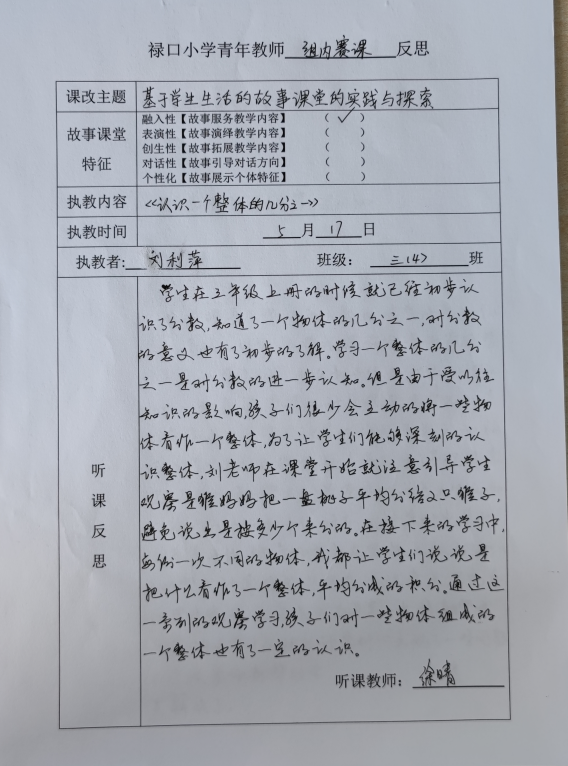 禄口小学青年教师 组内赛课 反思
课改主题 基于学生生活的故事课堂的实践与探索
故事课堂特征
融入性【故事服务教学内容】 （ ✓ ）
表演性【故事演绎教学内容】 （ ）
创生性【故事拓展教学内容】 （ ）
对话性【故事引导对话方向】 （ ）
个性化【故事展示个体特征】 （ ）
执教内容 《认识一个整体的几分之一》
执教时间 5 月 17 日
执教者: 刘利萍 班级: 三(4) 班
听课反思
学生在三年级上册的时候就已经初步认
识了分数,知道了一个物体的几分之一,对分数
的意义也有了初步的了解。学习一个整体的几分
之一是对分数的进一步认知。但是由于受以往
知识的影响,孩子们很少会主动的将一些物
体看作一个整体,为了让学生们能够深刻的认
识整体,刘老师在课堂开始就注意引导学生
观察是猴妈妈把一盘桃子平均分给4只猴子,
避免说出是按多少个来分的。在接下来的学习中,
每出一次不同的物体,我都让学生们说说是
把什么看作了一个整体,平均分成的积分。通过这
一系列的观察学习,孩子们对一些物体组成的
一个整体也有了一定的认识。
听课教师: 徐晴